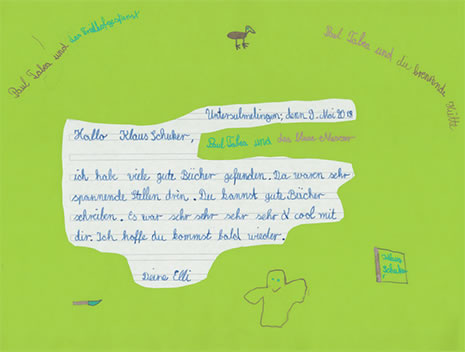 Paul und das Friedhofsgespenst
Paul und die brennende Hütte
Untersulmetingen, denn 9. Mai 2018
Hallo Klaus Schuker,
Paul und das blaue Messer
ich habe viele gute Bücher gefunden. Da waren sehr
spannende Stellen drin. Du kannst gute Bücher
schreiben. Es war sehr sehr sehr sehr cool mit
dir. Ich hoffe du kommst bald wieder.
Deine Elli
Klaus
Schuker